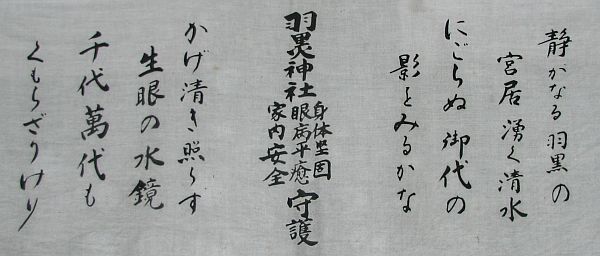 静がなる羽黒の
宮居湧く清水
にごらぬ御代の
影とみるかな
羽黒神社
身体堅固
眼病平癒
家内安全
守護
かげ清き照らす
生眼の水鏡
千代萬代も
くもらざりけり